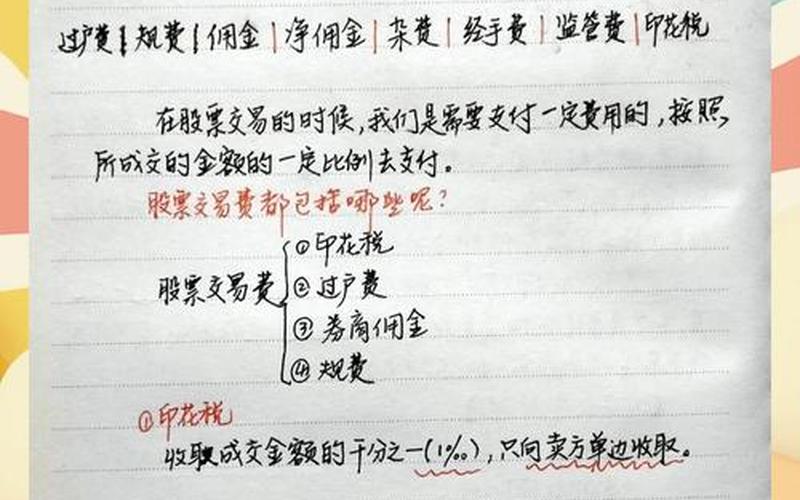 过户费|规费|佣金|净佣金|杂费|经手费|监管费|印花税
在股票交易的时候,我们是需要支付一定费用的,按照
所成交的金额的一定比例去支付。
股票交易费都包括哪些呢?
股票交易费
①印花税
②过户费
③券商佣金
④规费
①印花税
收取成交金额的千分之一(1‰),只向卖方单边收取。